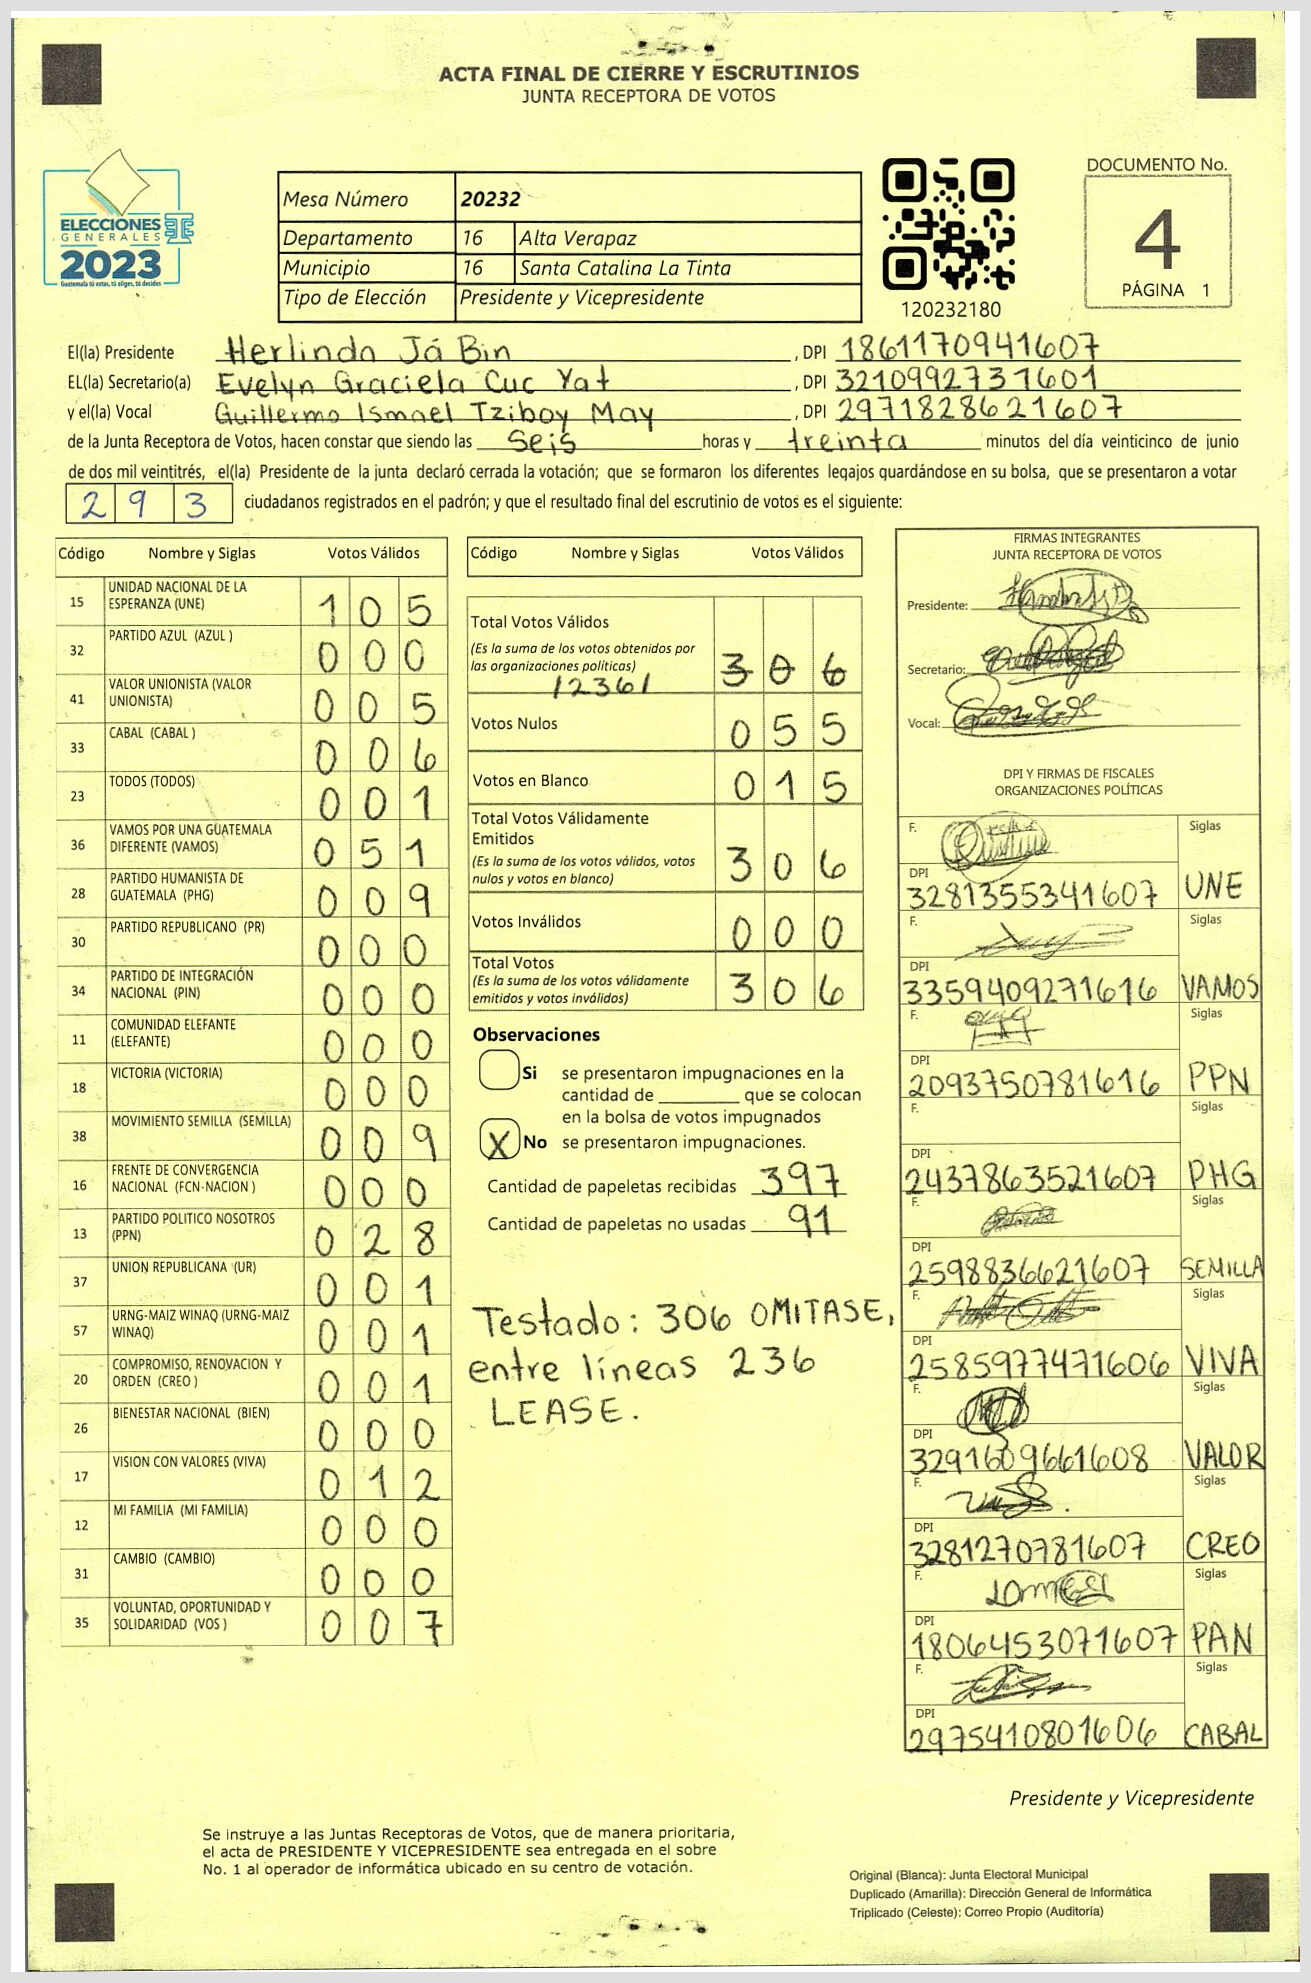 ACTA FINAL DE CIERRE Y ESCRUTINIOS
JUNTA RECEPTORA DE VOTOS
ELECCIONES
GENERALES
2023
Guatemala tú votas, tú eliges, tú decides
Mesa Número 20232
Departamento 16 Alta Verapaz
Municipio 16 Santa Catalina La Tinta
Tipo de Elección Presidente y Vicepresidente
120232180
DOCUMENTO No.
4
PÁGINA 1
El(la) Presidente Herlinda Já Bin, DPI 1861170941607
EL(la) Secretario(a) Evelyn Graciela Cuc Yat, DPI 3210992731601
y el(la) Vocal Guillermo Ismael Tziboy May, DPI 2971828621607
de la Junta Receptora de Votos, hacen constar que siendo las Seis horas y treinta minutos del día veinticinco de junio
de dos mil veintitrés, el(la) Presidente de la junta declaró cerrada la votación; que se formaron los diferentes legajos quardándose en su bolsa, que se presentaron a votar
293 ciudadanos registrados en el padrón; y que el resultado final del escrutinio de votos es el siguiente:
Código Nombre y Siglas Votos Válidos
15 UNIDAD NACIONAL DE LA
ESPERANZA (UNE) 105
32 PARTIDO AZUL (AZUL ) 000
41 VALOR UNIONISTA (VALOR
UNIONISTA) 005
33 CABAL (CABAL ) 006
23 TODOS (TODOS) 001
36 VAMOS POR UNA GUATEMALA
DIFERENTE (VAMOS) 051
28 PARTIDO HUMANISTA DE
GUATEMALA (PHG) 009
30 PARTIDO REPUBLICANO (PR) 000
34 PARTIDO DE INTEGRACIÓN
NACIONAL (PIN) 000
11 COMUNIDAD ELEFANTE
(ELEFANTE) 000
18 VICTORIA (VICTORIA) 000
38 MOVIMIENTO SEMILLA (SEMILLA) 009
16 FRENTE DE CONVERGENCIA
NACIONAL (FCN-NACION ) 000
13 PARTIDO POLITICO NOSOTROS
(PPN) 028
37 UNION REPUBLICANA (UR) 001
57 URNG-MAIZ WINAQ (URNG-MAIZ
WINAQ) 001
20 COMPROMISO, RENOVACION Y
ORDEN (CREO ) 001
26 BIENESTAR NACIONAL (BIEN) 000
17 VISION CON VALORES (VIVA) 012
12 MI FAMILIA (MI FAMILIA) 000
31 CAMBIO (CAMBIO) 000
35 VOLUNTAD, OPORTUNIDAD Y
SOLIDARIDAD (VOS ) 007
Código Nombre y Siglas Votos Válidos
Total Votos Válidos
(Es la suma de los votos obtenidos por
las organizaciones políticas) 306
/236/
Votos Nulos 055
Votos en Blanco 015
Total Votos Válidamente
Emitidos
(Es la suma de los votos válidos, votos
nulos y votos en blanco) 306
Votos Inválidos 000
Total Votos
(Es la suma de los votos válidamente
emitidos y votos inválidos) 306
Observaciones
Si se presentaron impugnaciones en la
cantidad de ________ que se colocan
en la bolsa de votos impugnados
X No se presentaron impugnaciones.
Cantidad de papeletas recibidas 397
Cantidad de papeletas no usadas 91
Testado: 306 OMITASE,
entre líneas 236
LEASE.
FIRMAS INTEGRANTES
JUNTA RECEPTORA DE VOTOS
Presidente:
Secretario:
Vocal:
DPI Y FIRMAS DE FISCALES
ORGANIZACIONES POLÍTICAS
F. Siglas
DPI
3281355341607 UNE
F. Siglas
DPI
3359409271616 VAMOS
F. Siglas
DPI
2093750781616 PPN
F. Siglas
DPI
2437863521607 PHG
F. Siglas
DPI
2598836621607 SEMILLA
F. Siglas
DPI
2585977471606 VIVA
F. Siglas
DPI
3291609661608 VALOR
F. Siglas
DPI
3281270781607 CREO
F. Siglas
DPI
1806453071607 PAN
F. Siglas
DPI
2975410801606 CABAL
Presidente y Vicepresidente
Se instruye a las Juntas Receptoras de Votos, que de manera prioritaria,
el acta de PRESIDENTE Y VICEPRESIDENTE sea entregada en el sobre
No. 1 al operador de informática ubicado en su centro de votación.
Original (Blanca): Junta Electoral Municipal
Duplicado (Amarilla): Dirección General de Informática
Triplicado (Celeste): Correo Propio (Auditoría)